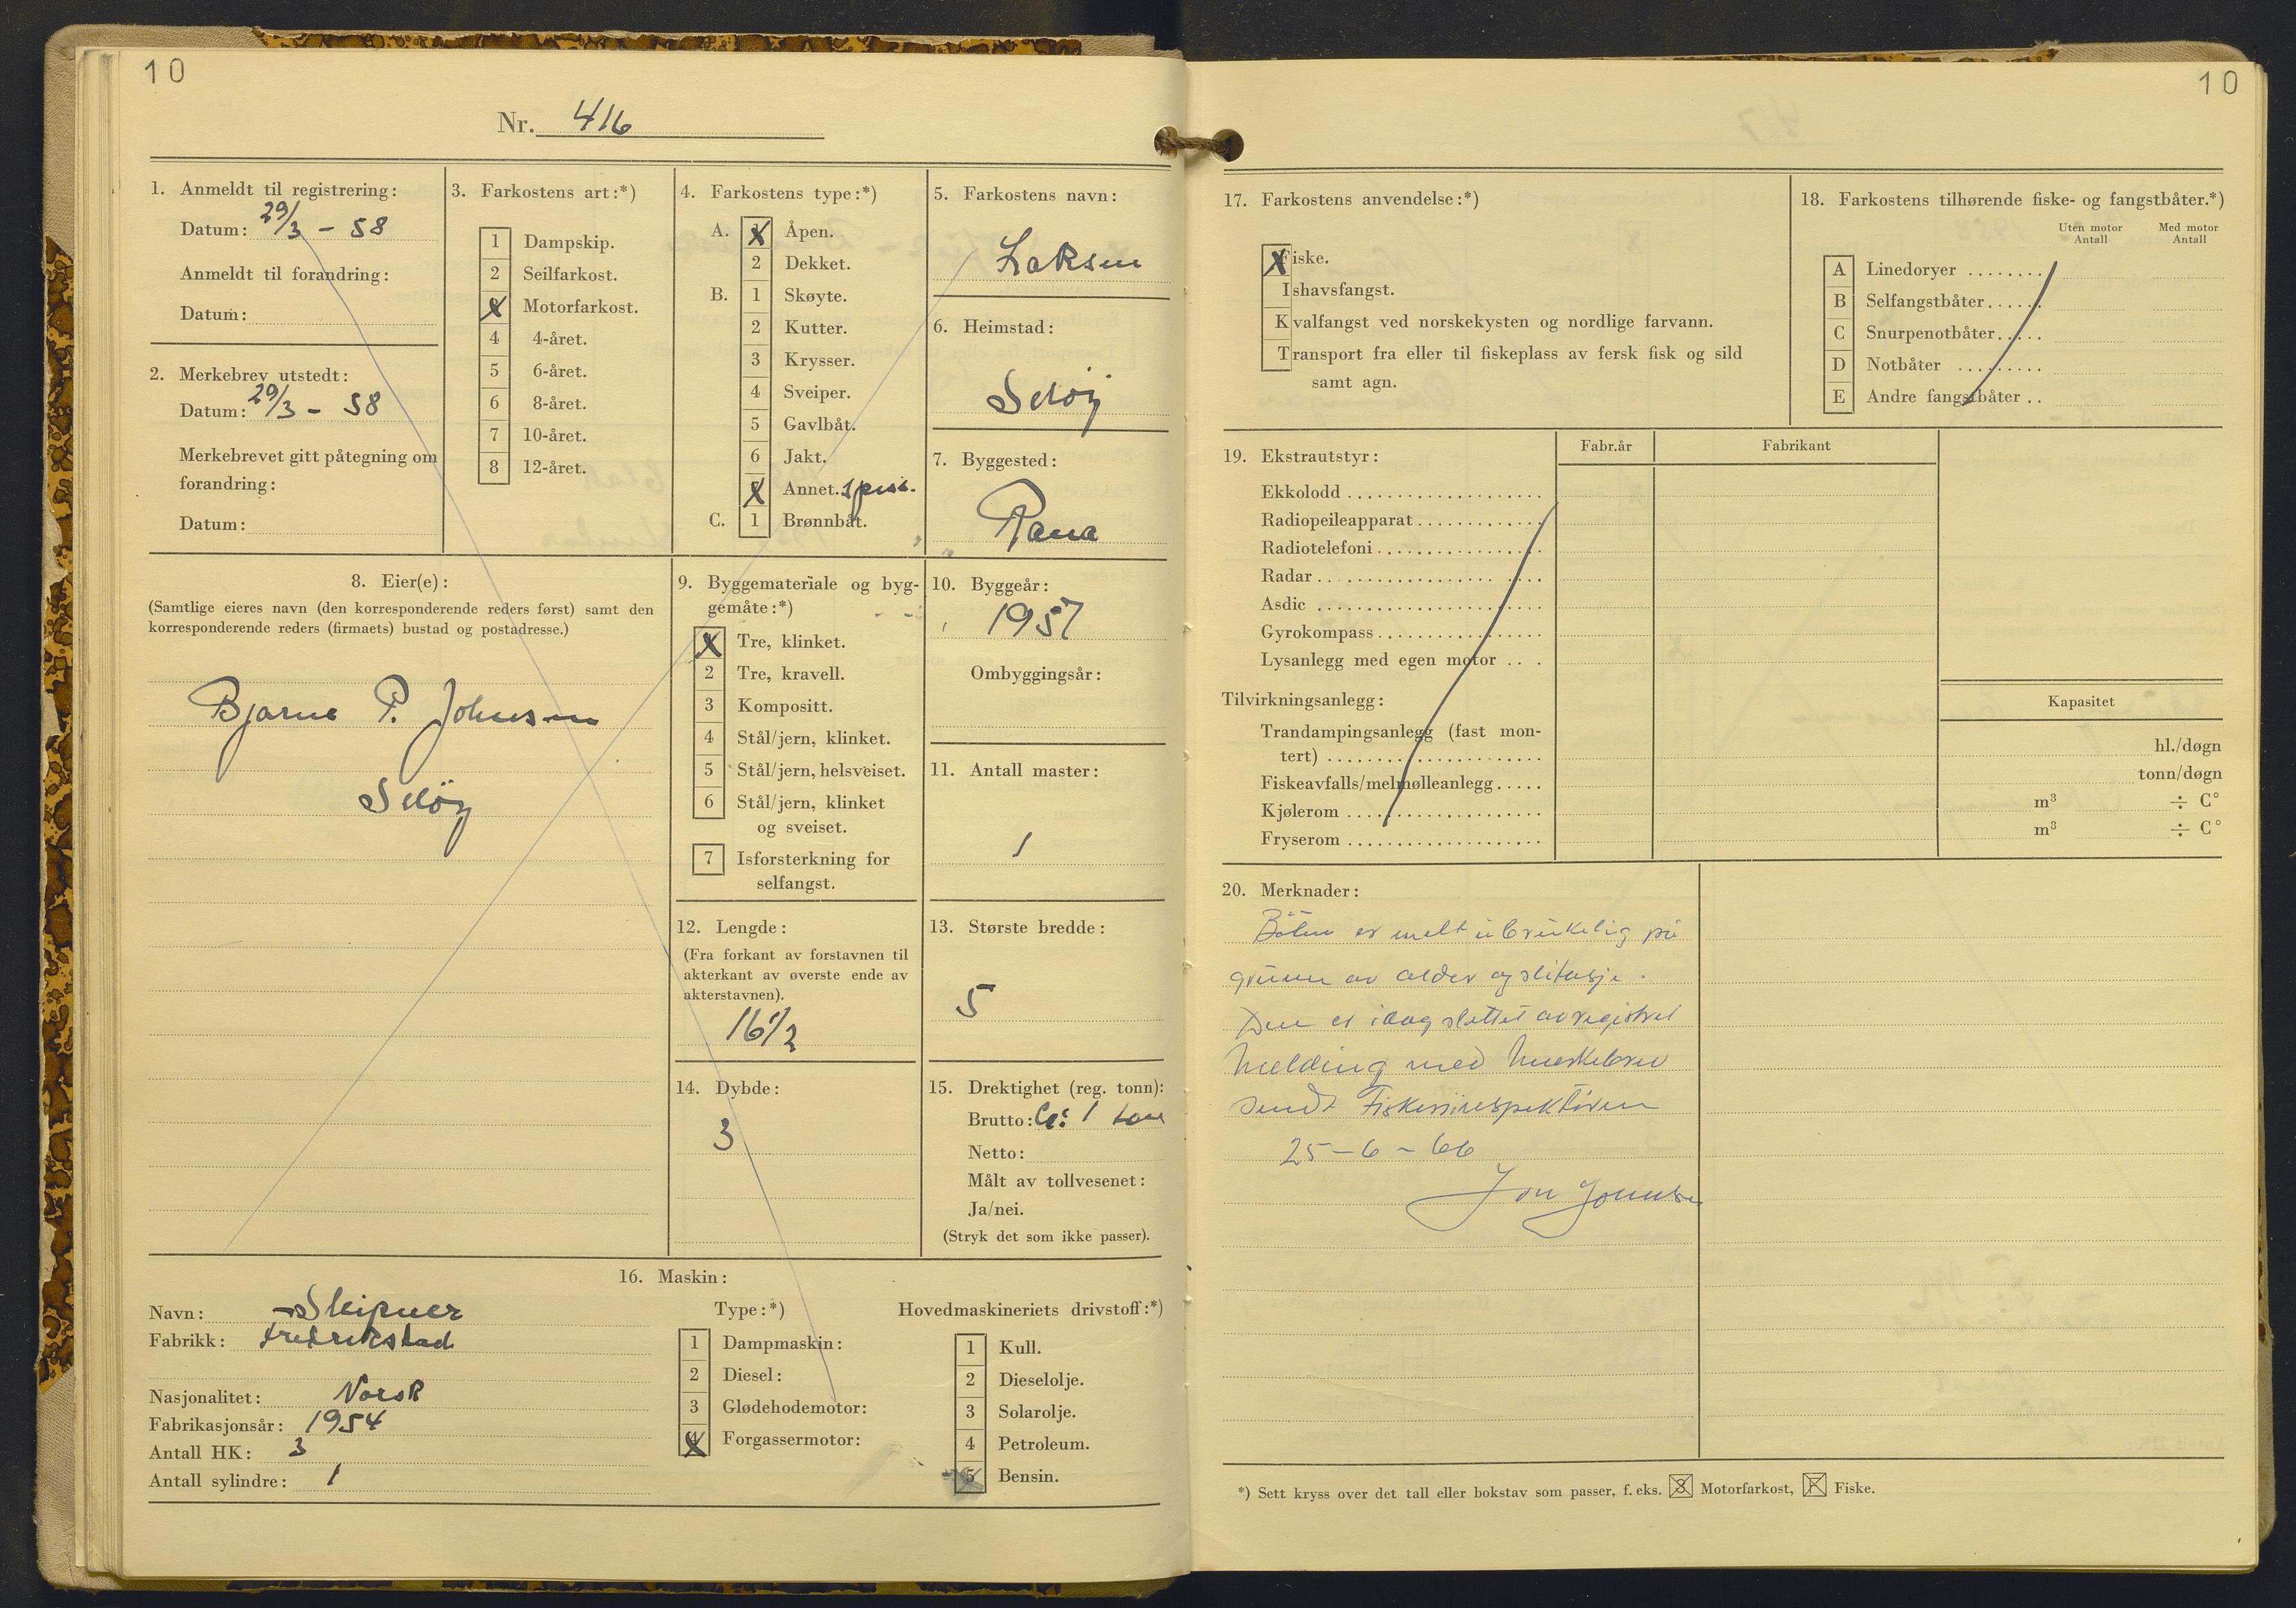 10
Nr. 416
1. Anmeldt til registrering:
Datum: 29/3 - 58
Anmeldt til forandring:
Datum:
2. Merkebrev utstedt:
Datum: 29/3 - 58
Merkebrevet gitt påtegning om
forandring:
Datum:
3. Farkostens art:*)
1 Dampskip.
2 Seilfarkost.
X Motorfarkost.
4 4-året.
5 6-året.
6 8-året.
7 10-året.
8 12-året.
4. Farkostens type:*)
A. X Åpen.
2 Dekket.
B. 1 Skøyte.
2 Kutter.
3 Krysser.
4 Sveiper.
5 Gavlbåt.
6 Jakt.
X Annet. spiss.
C. 1 Brønnbåt.
5. Farkostens navn:
Laksen
6. Heimstad:
Seløy
7. Byggested:
Rana
8. Eier(e):
(Samtlige eieres navn (den korresponderende reders først) samt den
korresponderende reders (firmaets) bustad og postadresse.)
Bjarne P. Johnsen
Seløy
9. Byggemateriale og byg-
gemåte:*)
X Tre, klinket.
2 Tre, kravell.
3 Kompositt.
4 Stål/jern, klinket.
5 Stål/jern, helsveiset.
6 Stål/jern, klinket
og sveiset.
7 Isforsterkning for
selfangst.
10. Byggeår:
1957
Ombyggingsår:
11. Antall master:
1
12. Lengde:
(Fra forkant av forstavnen til
akterkant av øverste ende av
akterstavnen).
16 1/2
13. Største bredde:
5
14. Dybde:
3
15. Drektighet (reg. tonn):
Brutto: Ca. 1 tonn
Netto:
Målt av tollvesenet:
Ja/nei.
(Stryk det som ikke passer).
16. Maskin:
Navn: Sleipner
Fabrikk: Fredrikstad
Nasjonalitet: Norsk
Fabrikasjonsår: 1954
Antall HK: 3
Antall sylindre: 1
Type:*)
1 Dampmaskin:
2 Diesel:
3 Glødehodemotor:
X Forgassermotor:
Hovedmaskineriets drivstoff:*)
1 Kull.
2 Dieselolje.
3 Solarolje.
4 Petroleum.
5 Bensin.
10
17. Farkostens anvendelse:*)
X Fiske.
Ishavsfangst.
Kvalfangst ved norskekysten og nordlige farvann.
Transport fra eller til fiskeplass av fersk fisk og sild
samt agn.
18. Farkostens tilhørende fiske- og fangstbåter.*)
Uten motor Antall
Med motor Antall
A Linedoryer
B Selfangstbåter
C Snurpenotbåter
D Notbåter
E Andre fangstbåter
19. Ekstrautstyr:
Fabr.år
Fabrikant
Ekkolodd
Radiopeileapparat
Radiotelefoni
Radar
Asdic
Gyrokompass
Lysanlegg med egen motor
Tilvirkningsanlegg:
Kapasitet
Trandampingsanlegg (fast mon-
tert) hl./døgn
Fiskeavfalls/melmølleanlegg tonn/døgn
Kjølerom m³ ÷ C°
Fryserom m³ ÷ C°
20. Merknader:
Båten er meldt ubrukelig på
grunn av alder og slitasje.
Den er idag slettet av registret
Melding med Merkebrev
sendt Fiskeriinspektøren
25-6-66
Jon
*) Sett kryss over det tall eller bokstav som passer, f. eks. 3 Motorfarkost, F Fiske.